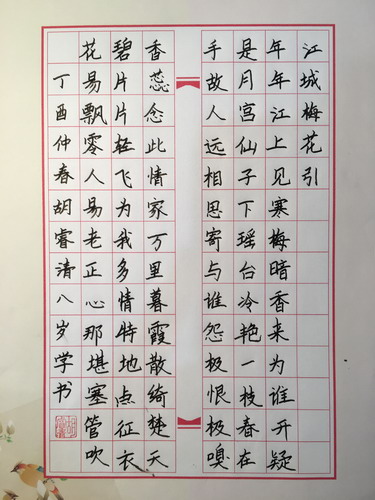 江城梅花引
年年江上见寒梅暗香来为谁开疑
是月宫仙子下瑶台冷艳一枝春在
手故人远相思寄与谁怨极恨极嗅
香蕊念此情家万里暮霞散绮楚天
碧片片轻飞为我多情特地点征衣
花易飘零人易老正心那堪塞管吹
丁酉仲春胡睿清八岁学书